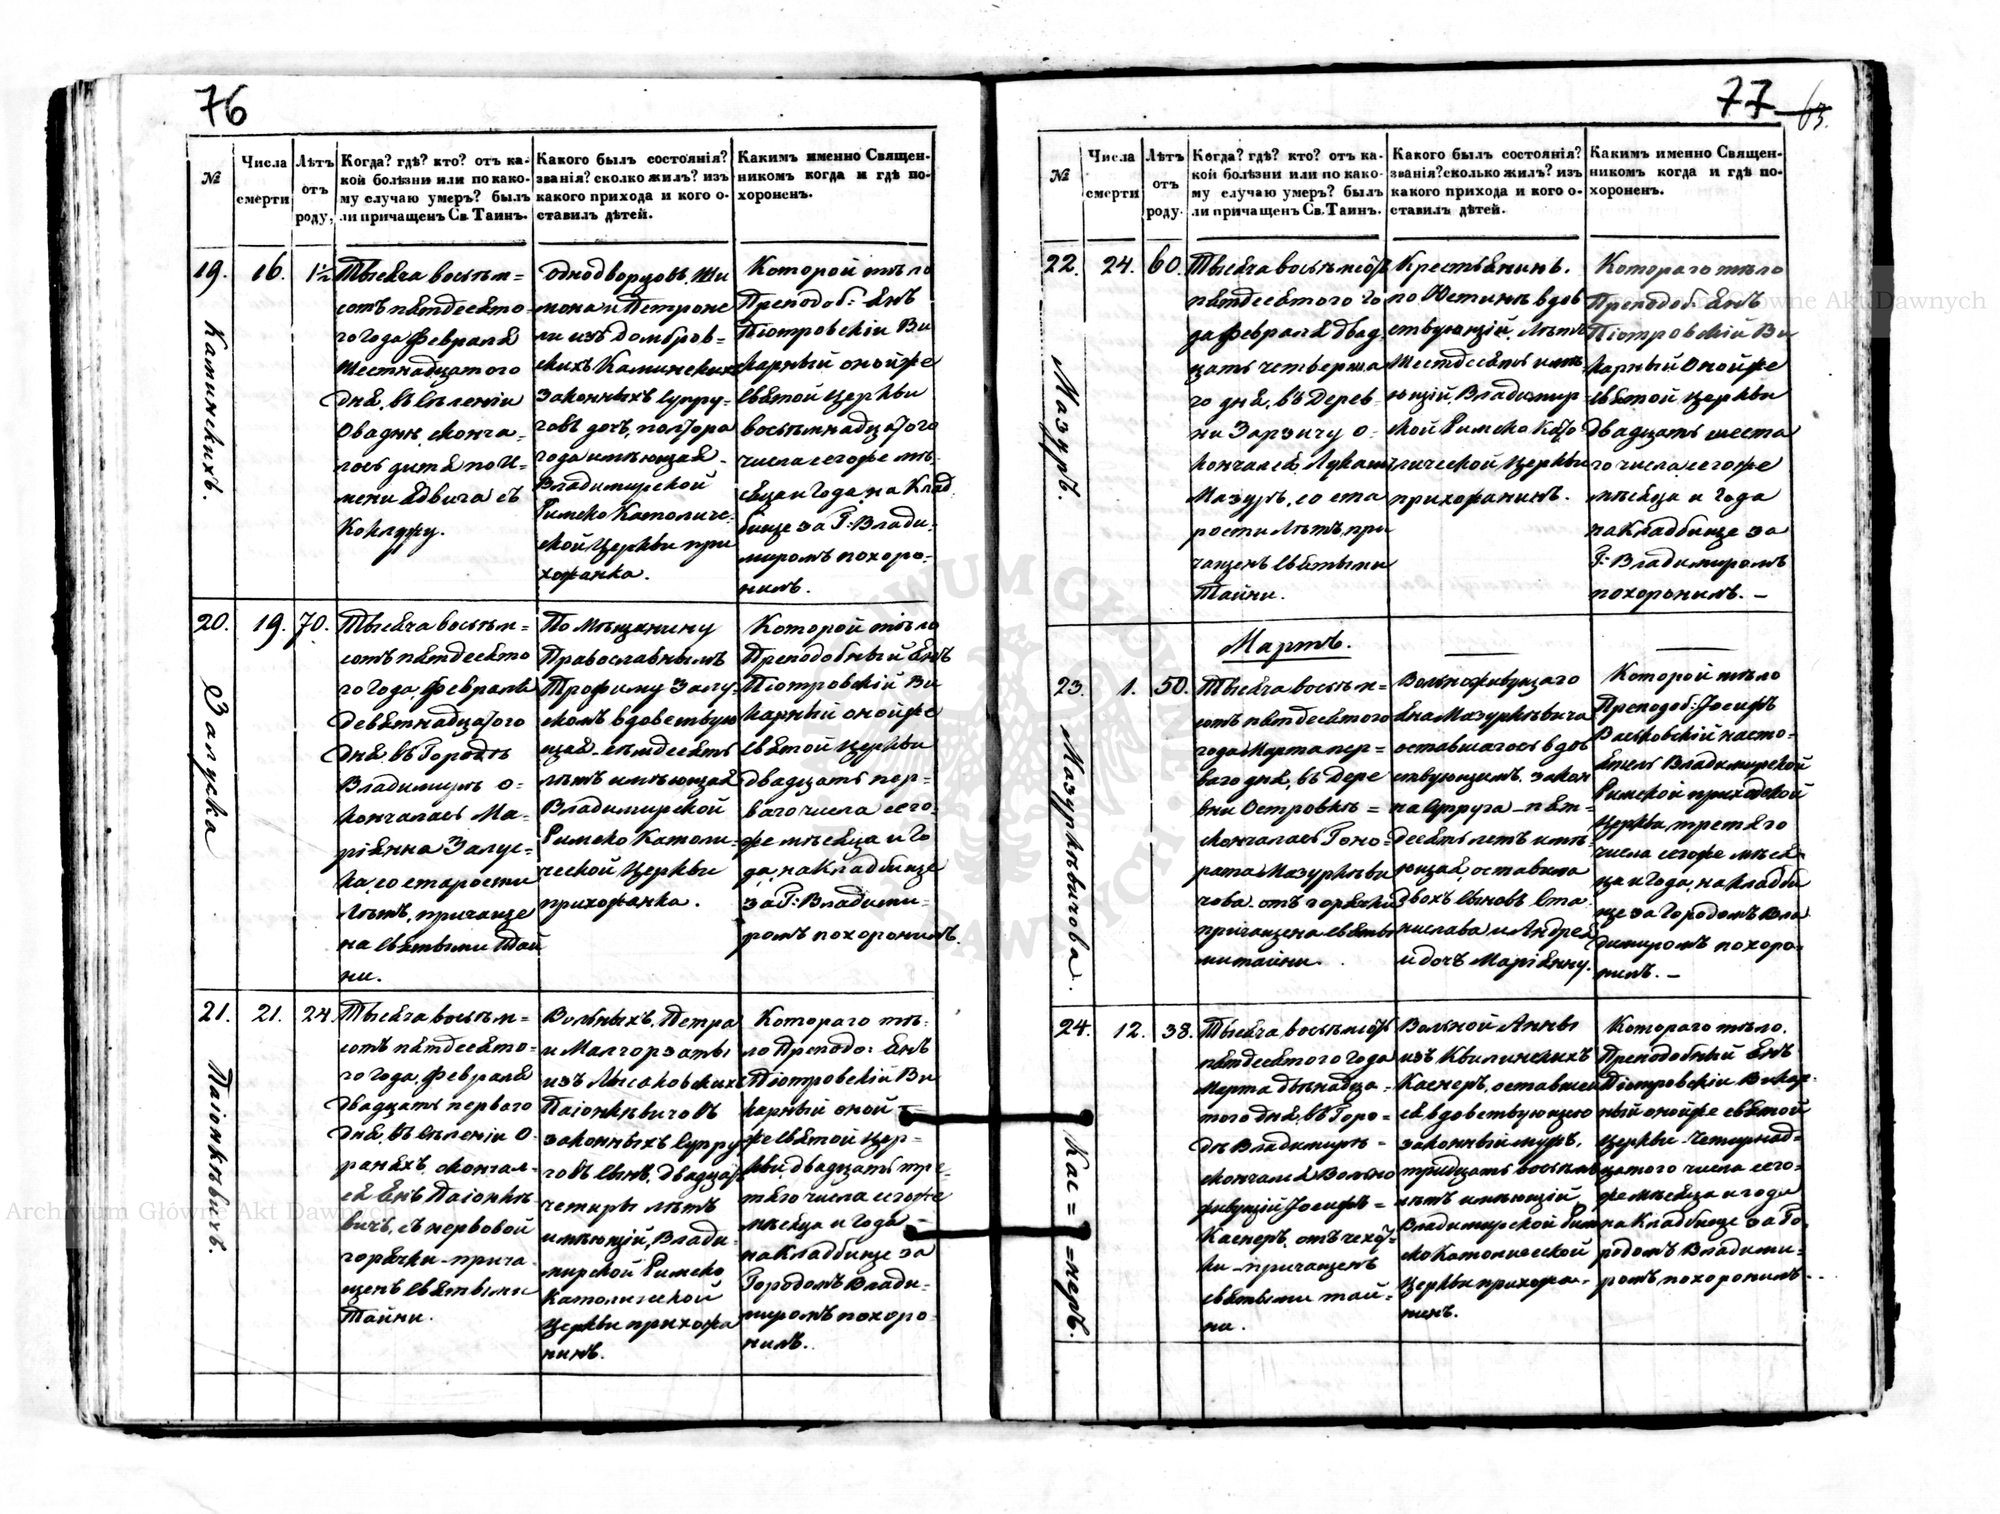 76
№
Числа
смерти
Лѣтъ
отъ
роду.
Когда? гдѣ? кто? отъ ка-
кой болѣзни или по како-
му случаю умеръ? былъ
ли причащенъ Св. Таинъ.
Какого былъ состоянія?
званія? сколко жилъ? изъ
какого прихода и кого о-
ставилъ дѣтей.
Какимъ именно Священ-
никомъ когда и гдѣ по-
хороненъ.
19.
Каминскихъ.
16.
1½
Тысяча восемъ=
сотъ пятдесято-
го года Февраля
Шестнадцатого
дня, въ селеніи
Овадни, сконча-
лось дитя по и-
мени Ядвига съ
Коклюшу.
однодворцовъ, Ши
мона и Петроне
ли изъ Домбров-
скихъ Каминскихъ
законныхъ супру-
говъ дочъ, полтора
года имѣющая
Владимирской
Римско Католиче-
ской Церкви при
хожанка.
Которой тѣло
Преподоб: Янъ
Піотровскій Ви
карный оной же
святой Церкви
восемнадцатого
числа сегоже мѣ-
сяца и года на Клад
бище за Г: Влади-
миромъ похоро-
нилъ.
20.
Залуска
19.
70.
Тысяча восемъ=
сотъ пятдесято
го года, Февраля
Девятнадцатого
дня, въ Городѣ
Владимирѣ о-
кончалась Ма-
ріянна Залус-
ка, со старости
лѣтъ, причаще
на святыми Тай
ни.
По мѣщанину
Православнымъ
Трофиму Залу-
скомъ вдовствую
щая семдесятъ
лѣтъ имѣющая
Владимирской
Римско Католи-
ческой Церкви
прихожанка.
Которой тѣло
Преподобный Янъ
Піотровскій Ви
карный оной же
святой Церкви
двадцать пер-
ваго числа сего-
же мѣсяца и го
да, на Кладбище
за Г: Владими-
ромъ похоронилъ.
21.
Паіонкѣвичъ.
21.
24.
Тысяча восемъ=
сотъ пятдесято-
го года, Февраля
двадцать перваго
дня, въ селеніи О
раняхъ, скончал-
ся Янъ Паіонкѣ
вичъ, съ нервовой
горячки прича-
щенъ святыми
Тайни.
Вольныхъ, Петра
и Малгоржаты
изъ Лисаковскихъ
Паіонкѣвичовъ
законныхъ супру
говъ сынъ, двадцать
четыри лѣтъ
имѣющій, Влади-
мирской Римско
Католической
Церкви прихожа
нинъ.
Котораго тѣ-
ло Преподо: Янъ
Піотровскій Ви
карный оной
же святой Цер-
кви, двадцать тре-
тяго числа сегоже
мѣсяца и года
на Кладбище за
Городомъ Влади-
миромъ похоро
нилъ.
77
63.
№
Числа
смерти
Лѣтъ
отъ
роду.
Когда? гдѣ? кто? отъ ка-
кой болѣзни или по како-
му случаю умеръ? былъ
ли причащенъ Св. Таинъ.
Какого былъ состоянія?
званія? сколько жилъ? изъ
какого прихода и кого о-
ставилъ дѣтей.
Какимъ именно Священ-
никомъ когда и гдѣ по-
хороненъ.
22.
Мазуръ.
24.
60.
Тысяча восемсотъ
пятдесятого го
да Февраля двад
цать четверта
го дня, въ Дерев-
ни Заржичу о-
кончался Лукашъ
Мазуръ, со ста
рости лѣтъ, при
чащенъ святыми
Тайни.
Крестьянинъ.
по Юстинѣ вдов
ствующій, лѣтъ
Шестдесятъ имѣ-
ющій, Владимир
ской Римско Като-
лической Церкви
прихожанинъ.
Котораго тѣло
Преподоб: Янъ
Піотровскій Ви
карный оной же
святой Церкви
двадцать шеста
го числа сегоже
мѣсяца и года
на Кладбище за
Г: Владимиромъ
похоронилъ. –
Мартъ.
23.
Мазуркѣвичова.
1.
50.
Тысяча восемъ=
сотъ пятдесятого
года Марта пер=
ваго дня, въ Дере
вни Островкѣ =
скончалась Гоно-
рата Мазуркѣви
чова отъ горячки
причащена святы
ми тайни.
Вольноживущаго
Яна Мазуркѣвича
оставшагось вдов
ствующимъ, закон
на супруга пят-
десятъ летъ имѣ-
ющая, оставила
двохъ сыновъ Ста
нислава и Андрея
и дочъ Маріянну.
Которой тѣло
Преподоб: Іосифъ
Васьковскій насто-
ятель Владимирской
Римской приходской
Церкви, третяго
числа сегоже мѣся-
ца и года, на кладби
ще за Городомъ Вла
димиромъ похоро-
нилъ. –
24.
Кас = = перъ.
12.
38.
Тысяча восемсотъ
пятдесятого года
Марта двѣнадца-
того дня, въ Горо-
дѣ Владимирѣ -
скончался Вольно
живущій Іосифъ =
Касперъ, отъ чехот-
ки причащенъ
святыми тай-
ни.
Вольной Анны
изъ Квилинскихъ
Касперъ, оставшей
ся вдовствующею
законный мужъ,
тридцать восемъ
лѣтъ имѣющій
Владимирской Рим
ско Католической
Церкви прихожа-
нинъ.
Котораго тѣло,
Преподобный Янъ
Піотровскій Викар-
ный оной же святой
Церкви четырнад-
цатого числа сего-
же мѣсяца и года
на Кладбище за Го-
родомъ Владими-
ромъ похоронилъ.
Archiwum Główne Akt Dawnych
Archiwum Główne Akt Dawnych
ARCHIWUM GŁÓWNE AKT DAWNYCH